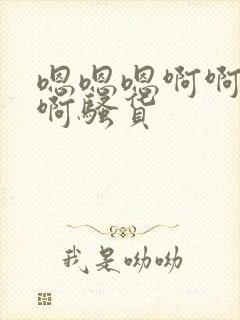 嗯嗯嗯啊啊
啊骚货
我是呦呦